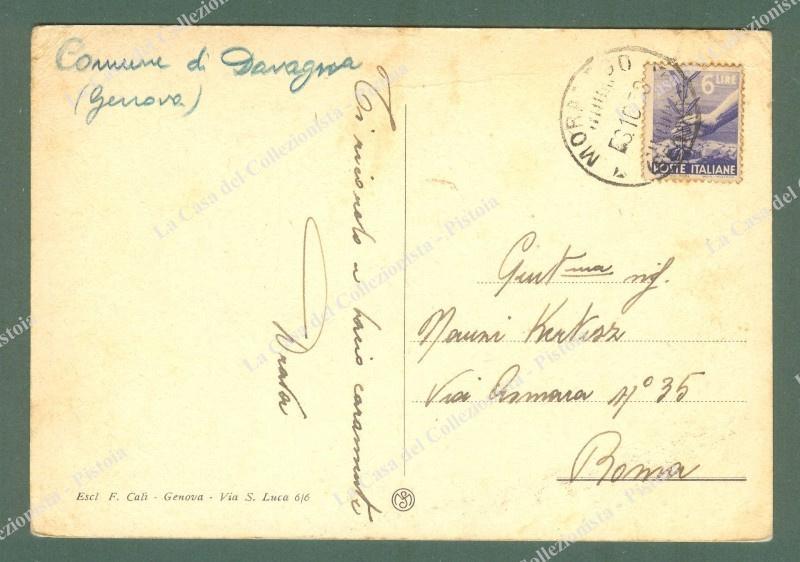 Comune di Davagna
(Genova)
Ti ricordo e bacio caramente
MORA
6 LIRE
POSTE ITALIANE
Gent.ma sig.
Kertesz
Via Asmara N° 35
Roma
Escl F. Calì - Genova - Via S. Luca 6/6
La Casa del Collezionista - Pistoia